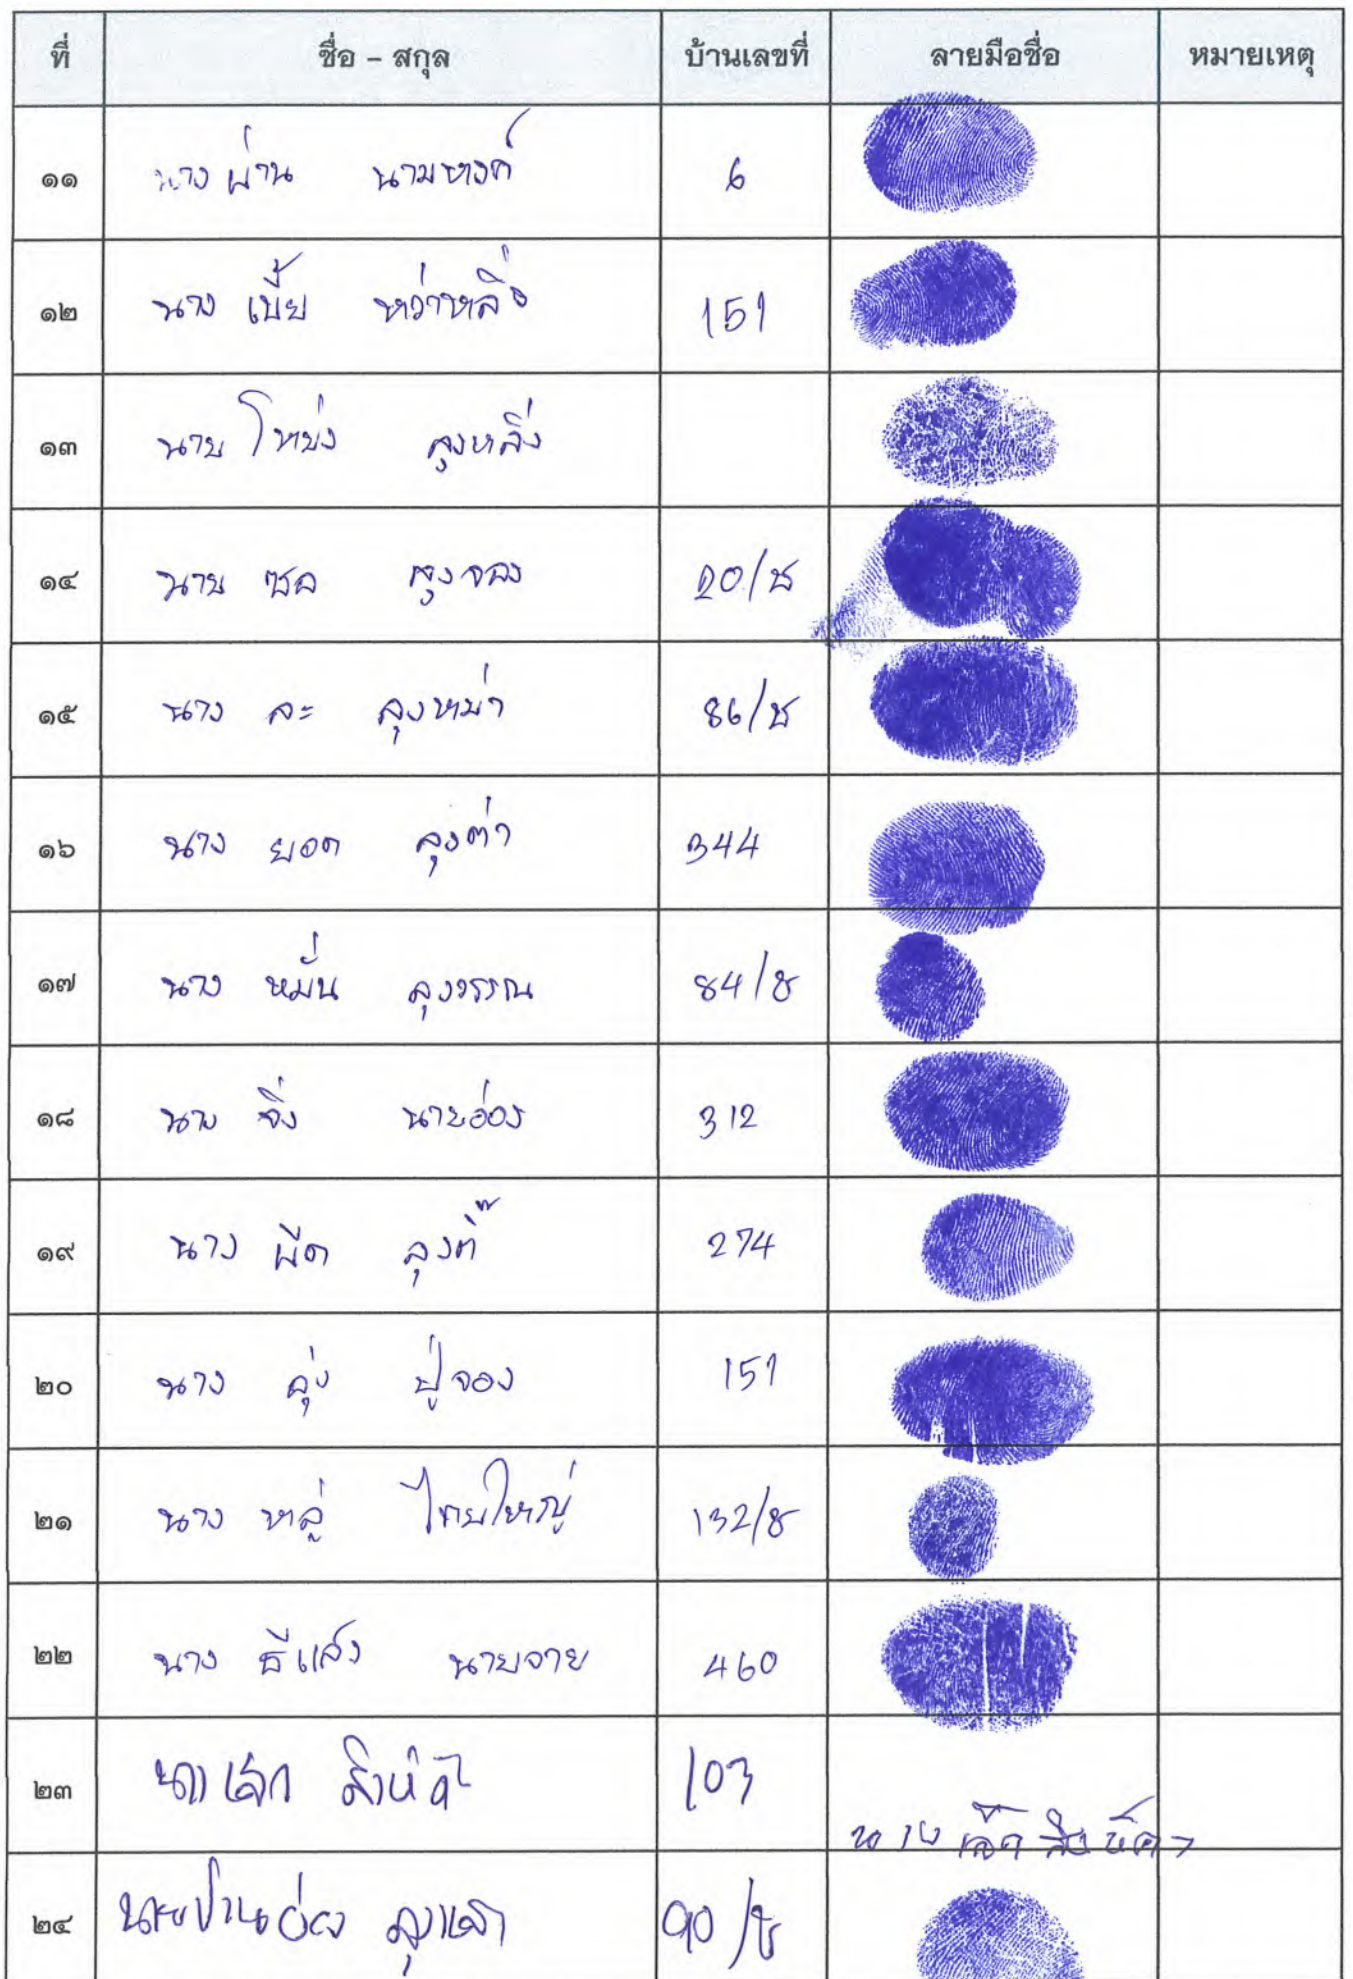 ที่ ชื่อ - สกุล บ้านเลขที่ ลายมือชื่อ หมายเหตุ
๑๑ นาง ผ่าน นามหงค์ 6
๑๒ นาง เบี้ย หว่าหลิ่ง 151
๑๓ นาย โหย่ง ลุงหลิ่ง
๑๔ นาย ลุงจอง 20/ช
๑๕ นาง ละ ลุงหม่า 86/ช
๑๖ นาง ยอด ลุงต่า 344
๑๗ นาง หมั่น ลุงวรรณ 84/ช
๑๘ นาง จิ่ง นายอ่อง 312
๑๙ นาง ลุงตี๊ 274
๒๐ นาง ลุ่ง ปู่จอง 151
๒๑ นาง หลู่ ไทยใหญ่ 132/ช
๒๒ นาง ธีแสง นายจาย 460
๒๓ 103
๒๔ 90/ช